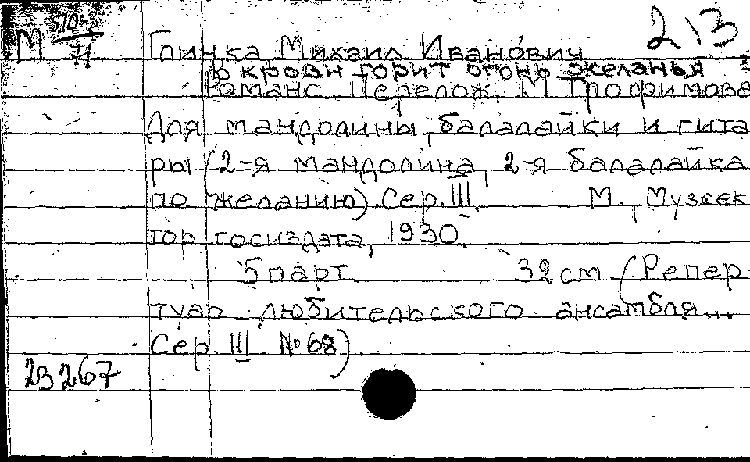 213
М 710/71 Глинка Михаил Иванович
В крови горит огонь желанья
Романс. Перелож. М Трофимова
Для мандолины, балалайки и гита
ры (2-я мандолина, 2-я балалайка
по желанию) Сер. III. М., Музсек
тор госиздата, 1930.
5 парт. 32 см (Репер
туар любительского ансамбля...
Сер. III № 68)
23267